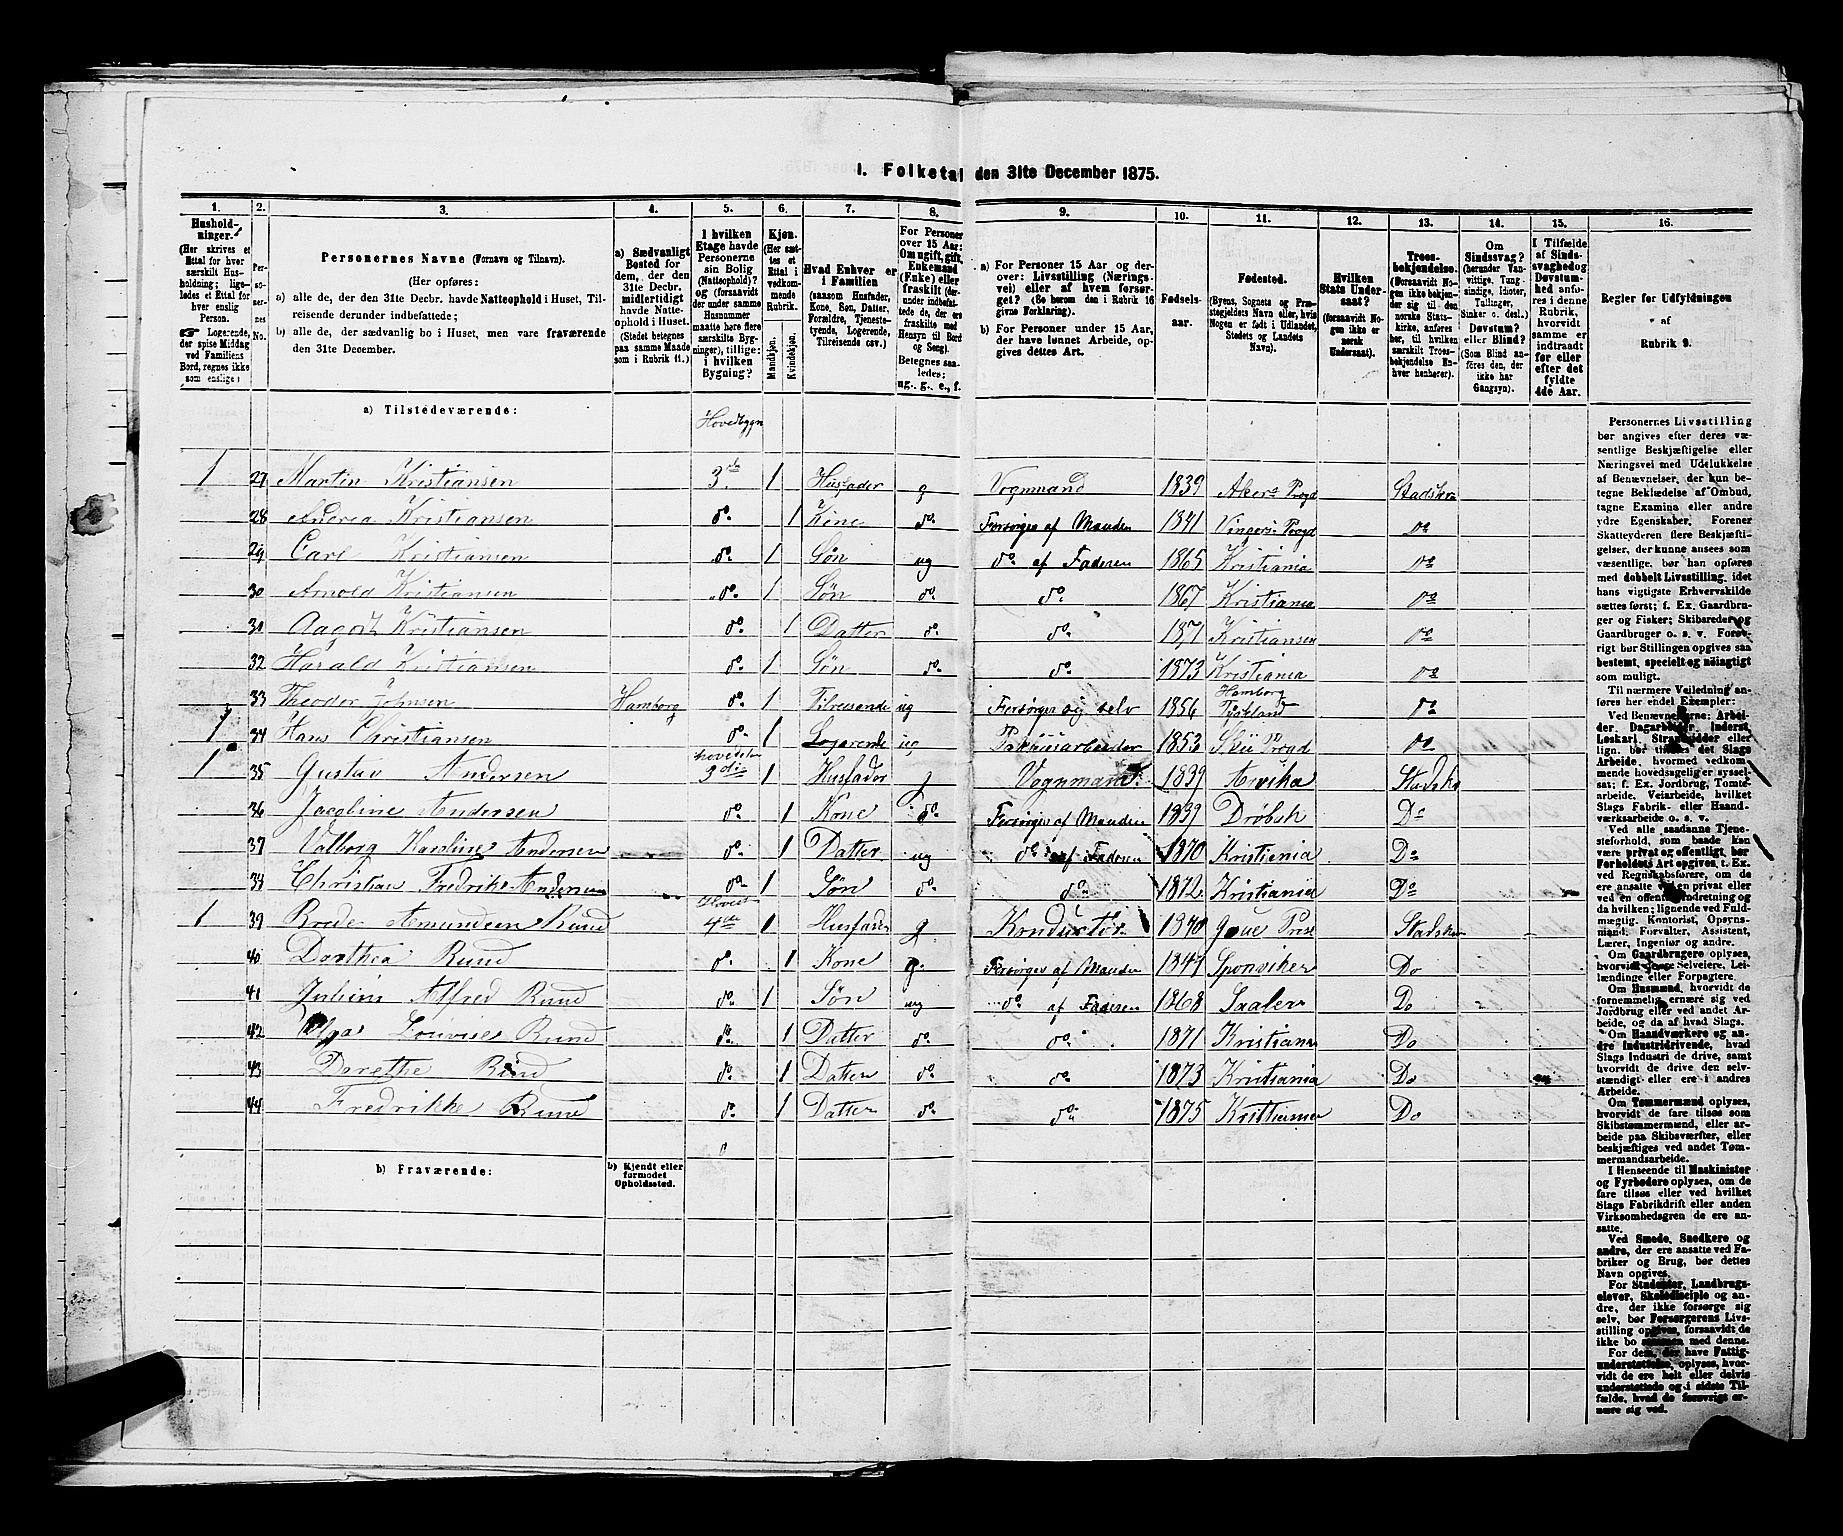 1. Folketal den 31te December 1875.
1. 2. 3. 4. 5. 6. 7. 8. 9. 10. 11. 12. 13. 14. 15. 16.
Husholdninger. (Her skrives et Ettal for hver særskilt Husholdning; ligeledes et Ettal for hver enslig Person. Logerende, der spise Middag ved Familiens Bord, regnes ikke som enslige)
Personernes No.
Personernes Navne (Fornavn og Tilnavn).
(Her opføres:
a) alle de, der den 31te Decbr. havde Natteophold i Huset, Tilreisende derunder indbefattede;
b) alle de, der sædvanlig bo i Huset, men vare fraværende den 31te December.
a) Sædvanligt Bosted for dem, der den 31te Decbr. midlertidigt havde Natteophold i Huset. (Stedet betegnes paa samme Maade som i Rubrik 11.)
I hvilken Etage havde Personerne sin Bolig (Natteophold)? og (forsaavidt der under samme Husnummer maatte høre flere særskilte Bygninger), tillige: i hvilken Bygning?
Kjøn. (Her sættes et Ettal i vedkommende Rubrik.
Mandkjøn.
Kvindekjøn.
Hvad Enhver er i Familien (saasom Husfader, Kone, Søn, Datter, Forældre, Tjenestetyende, Logerende, Tilreisende osv.)
For Personer over 15 Aar: Om ugift, gift, Enkemand (Enke) eller fraskilt (derunder indbefattede de, der ere fraskilte med Hensyn til Bord og Seng). Betegnes saaledes: ug., g., e., f.
a) For Personer 15 Aar og derover: Livsstilling (Næringsvei) eller af hvem forsørget? (Se herom den i Rubrik 16 givne Forklaring).
b) For Personer under 15 Aar, der have lønnet Arbeide, opgives dettes Art.
Fødselsaar.
Fødested. (Byens, Sognets og Præstegjeldets Navn eller, hvis Nogen er født i Udlandet, Stedets og Landets Navn).
Hvilken Stats Undersaat? (forsaavidt Nogen ikke er norsk Undersaat).
Troesbekjendelse. (Forsaavidt Nogen ikke bekjender sig til den norske Statskirke, anføres her, til hvilken særskilt Troesbekjendelse Enhver henhører).
Om Sindssvag? (herunder Vanvittige, Tungsindige, Idioter, Tullinger, Sinker o. desl.) Døvstum? eller Blind? (Som Blind anføres den, der ikke har Gangsyn).
I Tilfælde af Sindssvaghed og Døvstumhed anføres i denne Rubrik, hvorvidt samme er indtraadt før eller efter det fyldte 4de Aar.
Regler for Udfyldningen
af
Rubrik 9.
a) Tilstedeværende:
Hovedbygn
1 27 Martin Kristiansen 3de 1 Husfader g Vognmand 1839 Akers Prgd Stadskir
28 Andrea Kristiansen do 1 Kone do Forsørges af Manden 1841 Vingers Prgd do
29 Carl Kristiansen do 1 Søn ug do af Faderen 1865 Kristiania do
30 Arnold Kristiansen do 1 Søn do do 1867 Kristiania do
31 Kristiansen do 1 Datter do do 1871 Kristiansen do
32 Harald Kristiansen do 1 Søn do do 1873 Kristiania do
33 Theodor Johnsen Hamborg do 1 Tilreisende ug Forsørger sig selv 1856 Hamborg Tyskland do
1 34 Hans Christiansen do 1 Logerende ug Pakhusarbeider 1853 Skii Prgd do
1 35 Gustav Andersen 3die 1 Husfader g Vognmand 1839 Arvika Stadski
36 Jacobine Andersen do 1 Kone do Forsørges af Manden 1839 Drøbak Do
37 Valborg Karoline Andersen do 1 Datter ug do af Faderen 1870 Kristiania Do
38 Christian Fredrik Andersen do 1 Søn do do 1872 Kristiania Do
1 39 Brede Amundsen Rund 4de 1 Husfader g Konduktør 1840 Stadskir
40 Dorthea Rund do 1 Kone g. Forsørges af Manden 1847 Sponviken Do
41 Julius Alfred Rund do 1 Søn ug do af Faderen 1868 Do
42 Olga Lovise Rund do 1 Datter do do 1871 Kristiania Do
43 Dorethe Rund do 1 Datter do do 1873 Kristiania Do
44 Fredrikke Rund do 1 Datter do do 1875 Kristiania Do
b) Fraværende:
b) Kjendt eller formodet Opholdssted.
Personernes Livsstilling
bør angives efter deres væ-
sentlige Beskjæftigelse eller
Næringsvei med Udelukkelse
af Benævnelser, der kun be-
tegne Beklædelse af Ombud,
tagne Examina eller andre
ydre Egenskaber. Forener
Skatteyderen flere Beskjæfti-
gelser, der kunne ansees som
væsentlige, bør han opføres
med dobbelt Livsstilling, idet
hans vigtigste Erhvervskilde
sættes først; f. Ex. Gaardbru-
ger og Fisker; Skibsreder og
Gaardbruger o. s. v. Forøv-
rigt bør Stillingen opgives saa
bestemt, specielt og nøiagtigt
som muligt.
Til nærmere Veiledning an-
føres her endel Exempler:
Ved Benævnelserne: Arbei-
der, Dagarbeider, Inderst,
Løskarl, Strandsidder eller
lign. bør tilføies det Slags
Arbeide, hvormed vedkom-
mende hovedsagelig er syssel-
sat; f. Ex. Jordbrug, Tomte-
arbeide, Veiarbeide, hvilket
Slags Fabrik- eller Haand-
værksarbeide o. s. v.
Ved alle saadanne Tjene-
steforhold, som baade kan
være privat og offentligt, bør
Forholdets Art opgives, t. Ex.
ved Regnskabsførere, om de
ere ansatte ved en privat eller
ved en offentlig Indretning og
da hvilken; lignende ved Fuld-
mægtig, Kontorist, Opsyns-
mand, Forvalter, Assistent,
Lærer, Ingeniør og andre.
Om Gaardbrugere oplyses,
hvorvidt de ere Selveiere, Lei-
lændinge eller Forpagtere.
Om Husmænd, hvorvidt de
fornemmelig ernære sig ved
Jordbrug eller ved andet Ar-
beide, og da af hvad Slags.
Om Haandværkere og an-
dre Industridrivende, hvad
Slags Industri de drive, samt
hvorvidt de drive den selv-
stændigt eller ere i andres
Arbeide.
Om Tømmermænd oplyses,
hvorvidt de fare tilsøs som
Skibstømmermænd, eller ar-
beide paa Skibsværfter, eller
beskjæftiges ved andet Tøm-
mermandsarbeide.
I Henseende til Maskinister
og Fyrbødere oplyses, om de
fare tilsøs eller ved hvilket
Slags Fabrikdrift eller anden
Virksomhedsgren de ere an-
satte.
Ved Smede, Snedkere og
andre, der ere ansatte ved Fa-
briker og Brug, bør dettes
Navn opgives.
For Studenter, Landbrugs-
elever, Skoledisciple og an-
dre, der ikke forsørge sig
selv, bør Forsørgerens Livs-
stilling opgives, forsaavidt de
ikke bo sammen med denne.
For dem, der have Fattig-
understøttelse, oplyses, hvor-
vidt de ere helt eller delvis
understøttede og i sidste Til-
fælde, hvad de forøvrigt er-
nære sig ved.